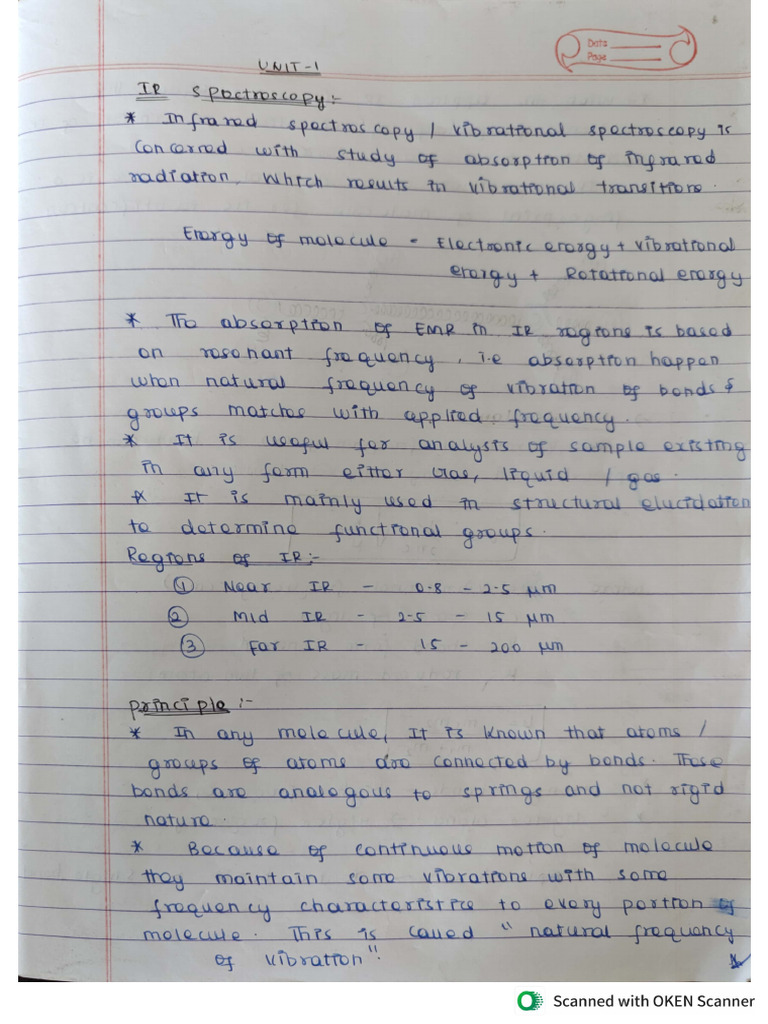 Data
Page
UNIT-1
IR Spectroscopy:-
* Infrared spectroscopy / Vibrational spectroscopy is
concerned with study of absorption of infrared
radiation, which results in vibrational transitions.
Energy of molecule = Electronic energy + Vibrational
energy + Rotational energy
* The absorption of EMR in IR regions is based
on resonant frequency, i.e absorption happen
when natural frequency of vibration of bonds &
groups matches with applied frequency.
* It is useful for analysis of sample existing
in any form either Gas, liquid / gas.
* It is mainly used in structural elucidation
to determine functional groups.
Regions of IR:-
① Near IR - 0.8 - 2.5 μm
② Mid IR - 2.5 - 15 μm
③ Far IR - 15 - 200 μm
Principle :-
* In any molecule, It is known that atoms /
groups of atoms are connected by bonds. These
bonds are analogous to springs and not rigid
nature.
* Because of continuous motion of molecule
they maintain some vibrations with some
frequency characteristic to every portion of
molecule. This is called "natural frequency
of vibration".
Scanned with OKEN Scanner